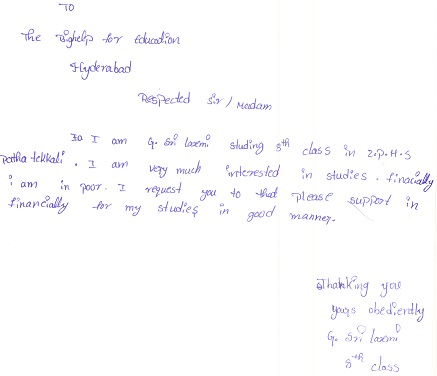 TO
The Bighelp for education
Hyderabad
Respected sir / Madam
I am G. Sri laxmi studing 8th class in Z.P.H.S
patha tekkali . I am very much interested in studies . finacially
i am in poor. I request you to that please support in
financially for my studies in good manner.
Thanking you
yaqs obediently
G. Sri laxmi
8th class